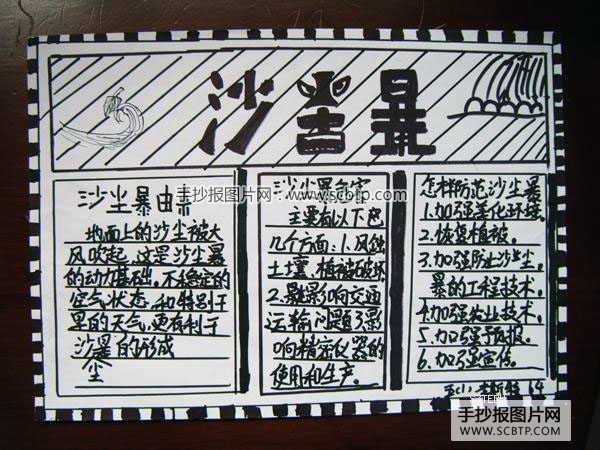 沙尘暴
沙尘暴由来
地面上的沙尘被大
风吹起,这是沙尘暴
的动力基础,不稳定的
空气状态,和特别干
旱的天气,更有利于
沙暴的形成
尘
沙尘暴危害
主要有以下
几个方面:1.风蚀
土壤,植被破坏
2.影响交通
运输问题3.影
响精密仪器的
使用和生产。
怎样防范沙尘暴
1.加强美化环境
2.恢复植被。
3.加强防止沙尘
暴的工程技术。
4.加强农业技术。
5.加强予报。
6.加强宣传。
64
手抄报图片网
www.scbtp.com
手抄报图片网
WWW.SCBTP.COM